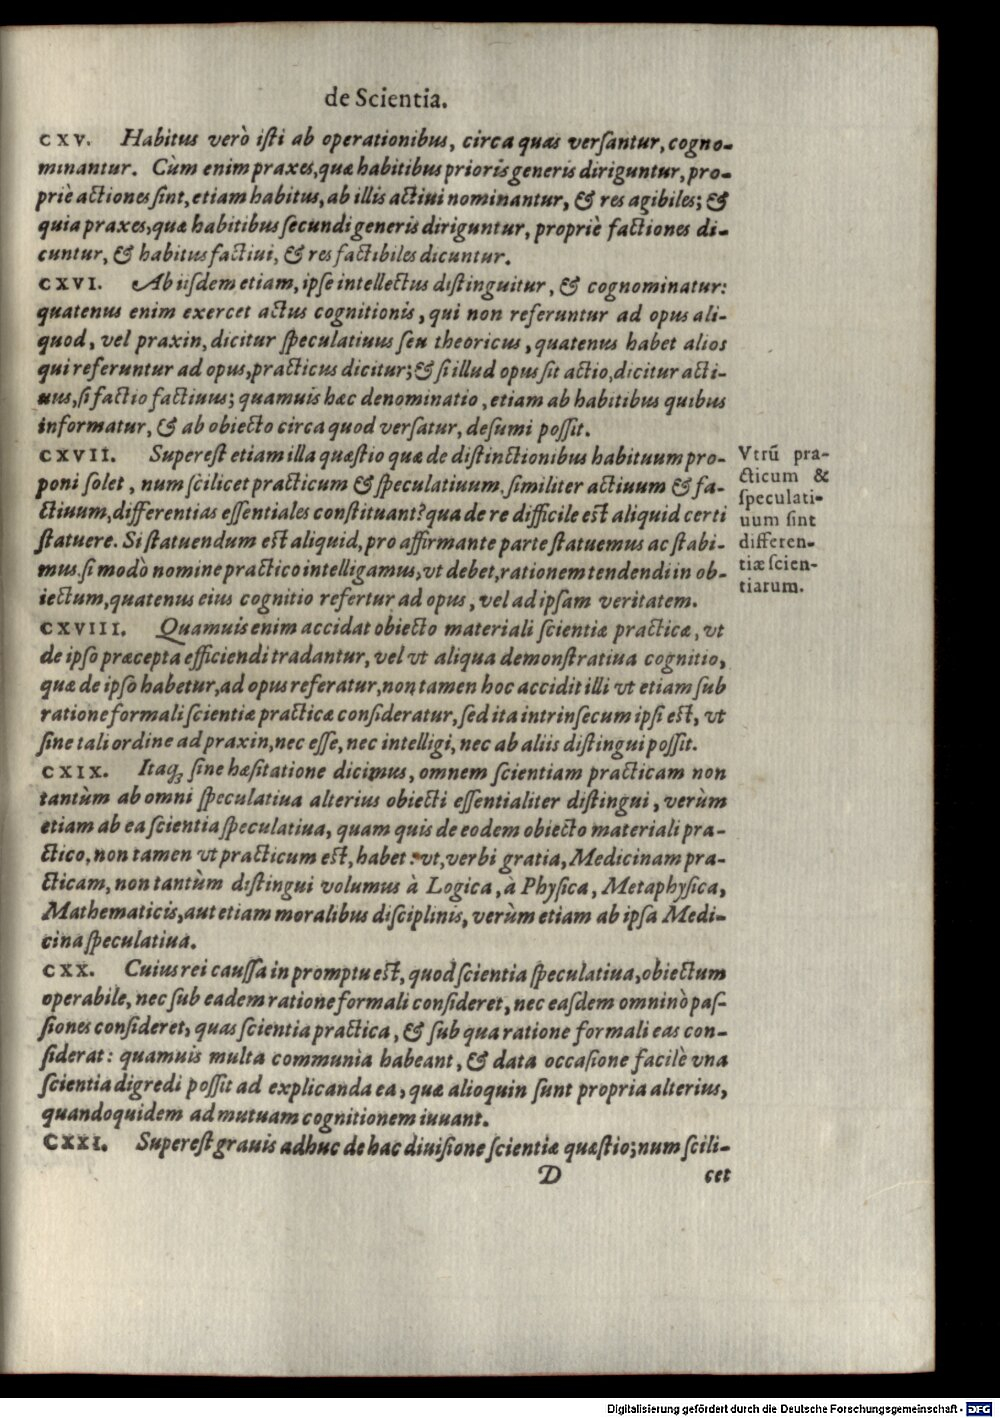 de Scientia.
CXV. Habitus verò iſti ab operationibus, circa quas verſantur, cogno-
minantur. Cùm enim praxes, quæ habitibus prioris generis diriguntur, pro-
priè actiones ſint, etiam habitus, ab illis actiui nominantur, & res agibiles; &
quia praxes, quæ habitibus ſecundi generis diriguntur, propriè factiones di-
cuntur, & habitus factiui, & res factibiles dicuntur.
CXVI. Ab iiſdem etiam, ipſe intellectus diſtinguitur, & cognominatur:
quatenus enim exercet actus cognitionis, qui non referuntur ad opus ali-
quod, vel praxin, dicitur ſpeculatiuus ſeu theoricus, quatenus habet alios
qui referuntur ad opus, practicus dicitur; & ſi illud opus ſit actio, dicitur acti-
uus, ſi factio factiuus; quamuis hæc denominatio, etiam ab habitibus quibus
informatur, & ab obiecto circa quod verſatur, deſumi poſſit.
CXVII. Supereſt etiam illa quæſtio quæ de diſtinctionibus habituum pro-
poni ſolet, num ſcilicet practicum & ſpeculatiuum, ſimiliter actiuum & fa-
ctiuum, differentias eſſentiales conſtituant? qua de re difficile eſt aliquid certi
ſtatuere. Si ſtatuendum eſt aliquid, pro affirmante parte ſtatuemus ac ſtabi-
mus, ſi modò nomine practico intelligamus, vt debet, rationem tendendi in ob-
iectum, quatenus eius cognitio refertur ad opus, vel ad ipſam veritatem.
Vtrū pra-
cticum &
ſpeculati-
uum ſint
differen-
tiæ ſcien-
tiarum.
CXVIII. Quamuis enim accidat obiecto materiali ſcientiæ practicæ, vt
de ipſo præcepta efficiendi tradantur, vel vt aliqua demonſtratiua cognitio,
quæ de ipſo habetur, ad opus referatur, non tamen hoc accidit illi vt etiam ſub
ratione formali ſcientiæ practicæ conſideratur, ſed ita intrinſecum ipſi eſt, vt
ſine tali ordine ad praxin, nec eſſe, nec intelligi, nec ab aliis diſtingui poſſit.
CXIX. Itaq; ſine hæſitatione dicimus, omnem ſcientiam practicam non
tantùm ab omni ſpeculatiua alterius obiecti eſſentialiter diſtingui, verùm
etiam ab ea ſcientia ſpeculatiua, quam quis de eodem obiecto materiali pra-
ctico, non tamen vt practicum eſt, habet: vt, verbi gratia, Medicinam pra-
cticam, non tantùm diſtingui volumus à Logica, à Phyſica, Metaphyſica,
Mathematicis, aut etiam moralibus diſciplinis, verùm etiam ab ipſa Medi-
cina ſpeculatiua.
CXX. Cuius rei cauſſa in promptu eſt, quod ſcientia ſpeculatiua, obiectum
operabile, nec ſub eadem ratione formali conſideret, nec eaſdem omninò paſ-
ſiones conſideret, quas ſcientia practica, & ſub qua ratione formali eas con-
ſiderat: quamuis multa communia habeant, & data occaſione facilè vna
ſcientia digredi poſſit ad explicanda ea, quæ alioquin ſunt propria alterius,
quandoquidem ad mutuam cognitionem iuuant.
CXXI. Supereſt grauis adhuc de hac diuiſione ſcientiæ quæſtio; num ſcili-
D cet
Digitalisierung gefördert durch die Deutsche Forschungsgemeinschaft - DFG